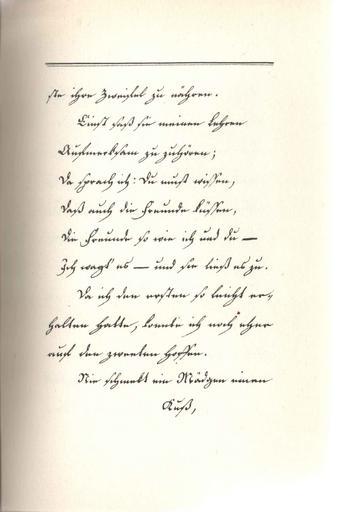 ste ihre Zweifel zu nähren.
Einst saß sie meinen Lehren
Aufmerksam zu zuhören;
Da sprach ich: Du must wissen,
Daß auch die Freunde küssen,
Die Freunde so wie ich und du —
Ich wagt' es — und sie ließ es zu.
Da ich den ersten so leicht er-
halten hatte, konnte ich noch eher
auf den zweeten hoffen.
Nie schmekt ein Mädgen einen
Kuß,